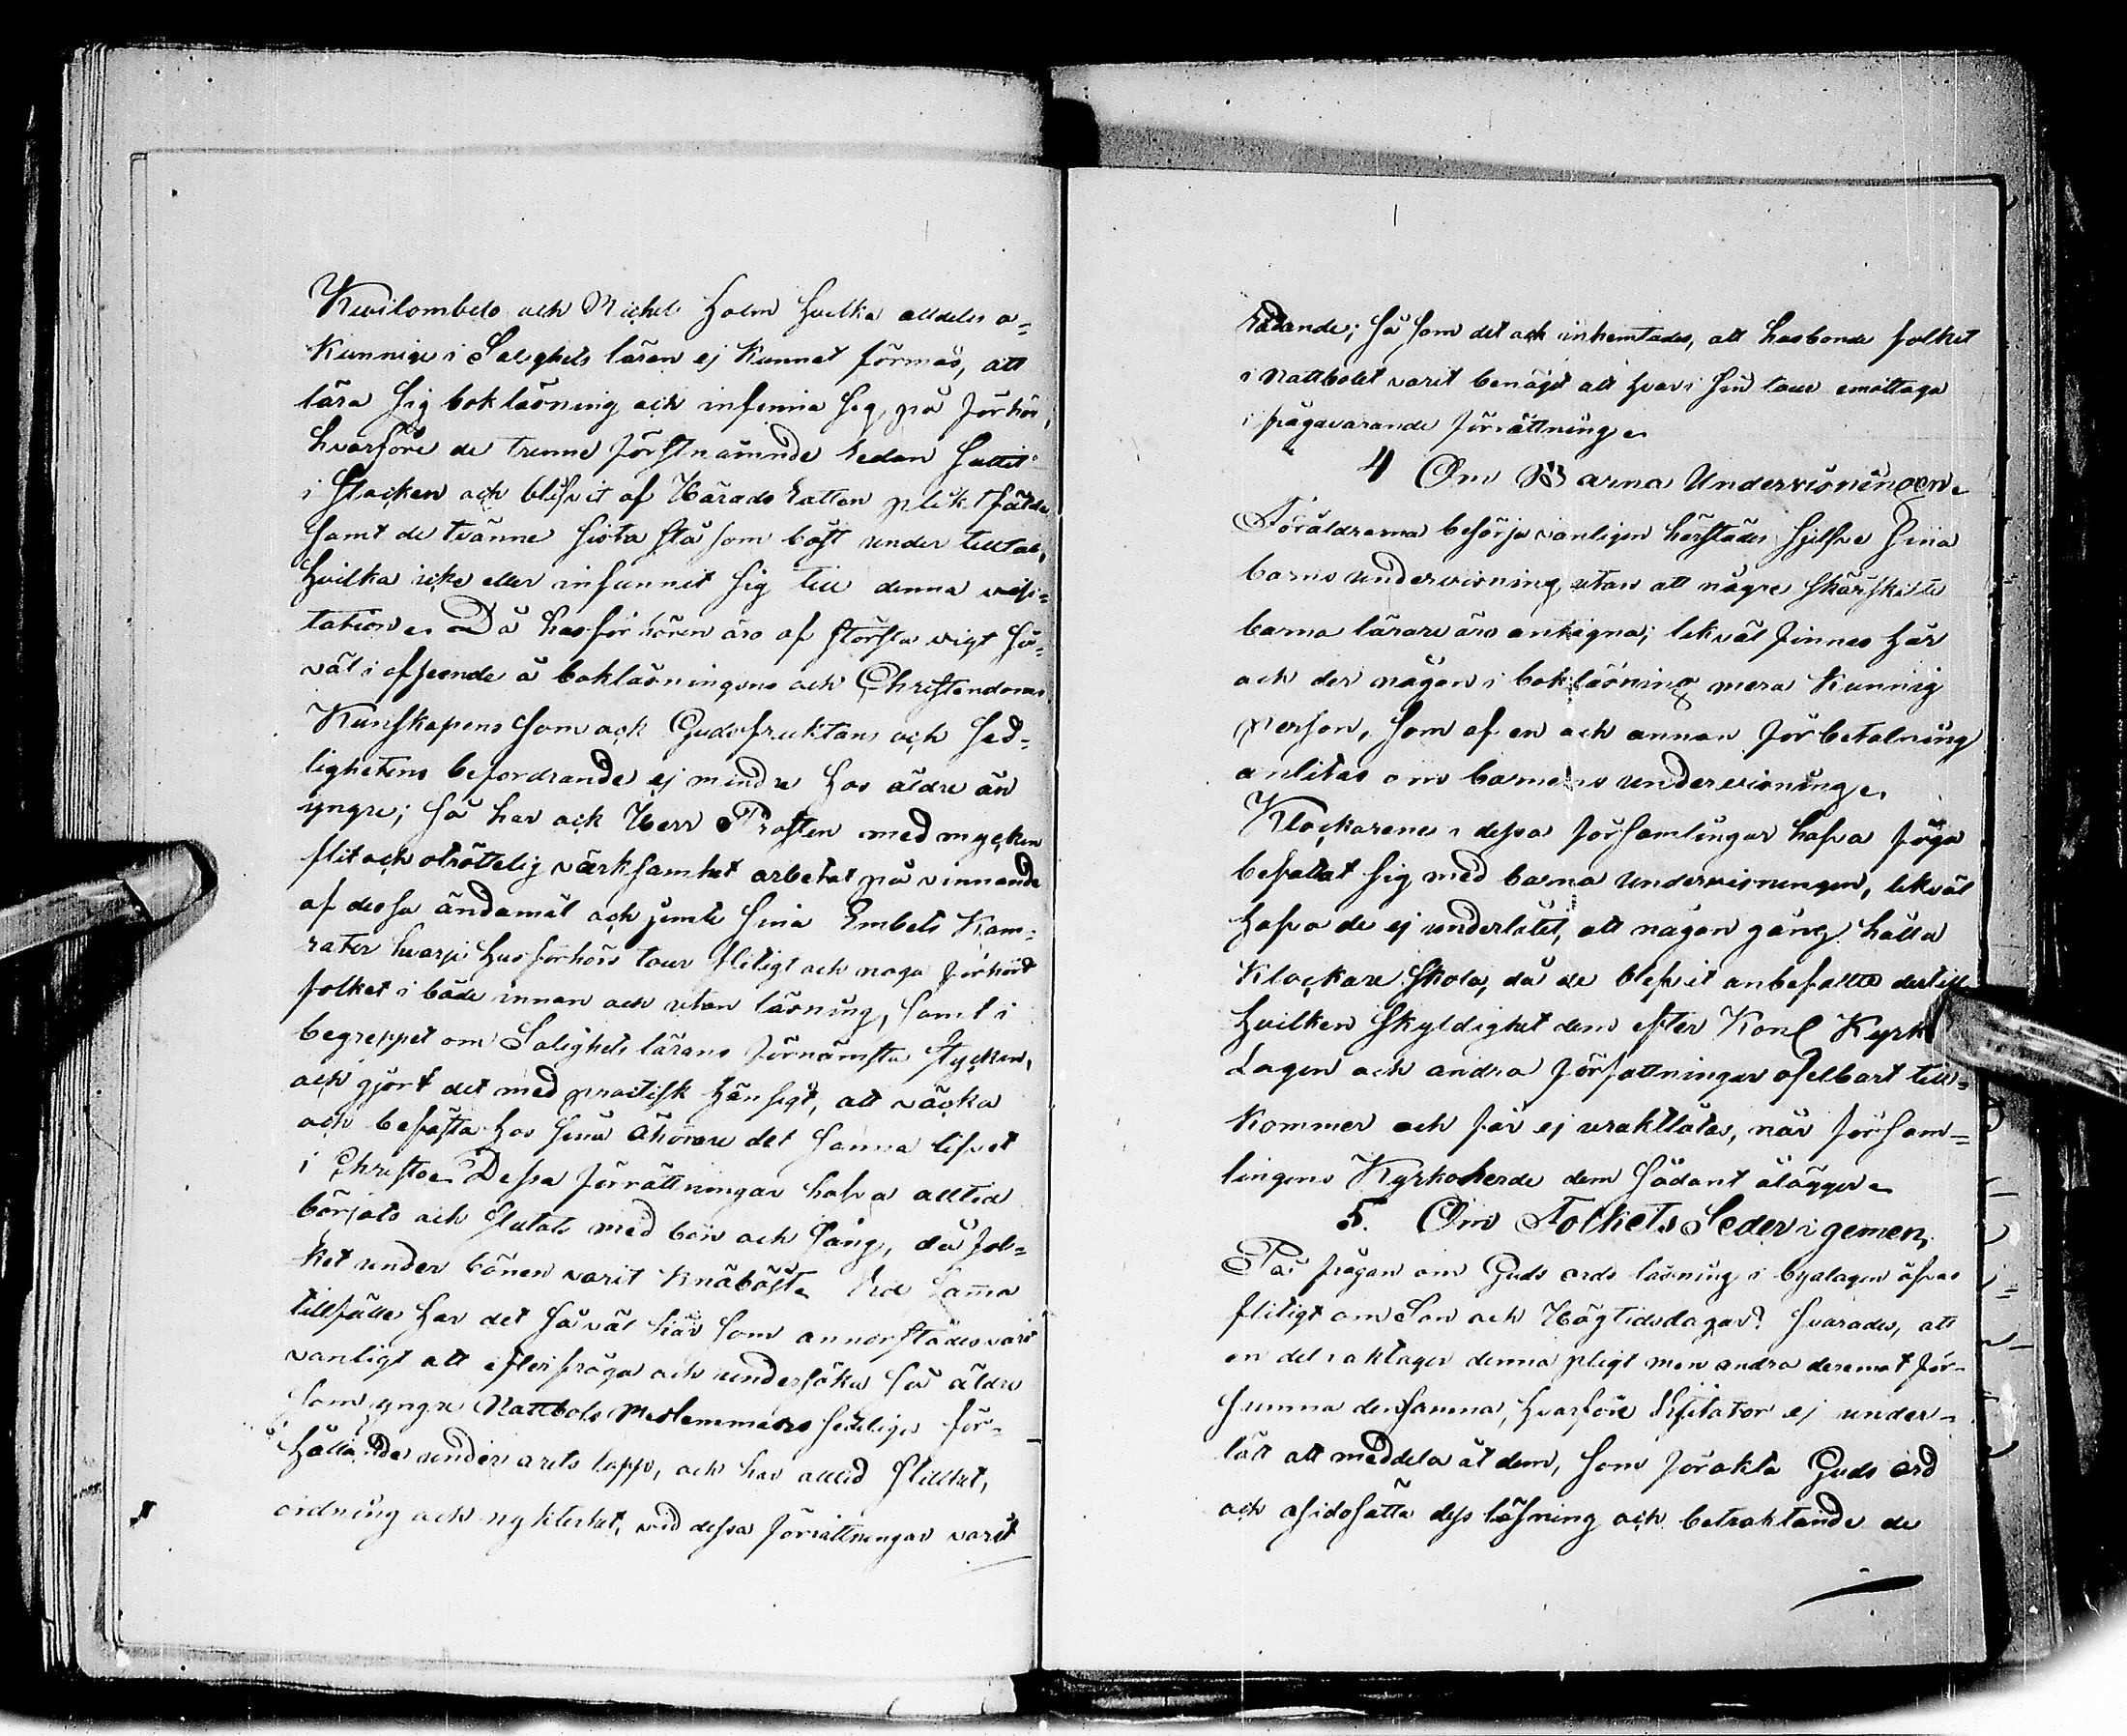 Kwilombelo och Michel Holm hvilka alldeles o-
kunnige i Salighets läran ej kunnat förmås, att
lära sig bokläsning och infinna sig på förhör,
hvarföre de trenne förstnämnde redan suttit
i stocken och blifvit af Härads Rätten pliktfälde
samt de tvänne sista stå som bäst under tilltal,
hvilka icke eller infunnit sig till denna visi-
tation. Då husförhören äro af största vigt så-
väl i afseende å bokläsningens och Christendoms
Kunskapens som ock Gudsfruktans och sed-
lighetens befordrande ej mindre hos äldre än
yngre; så har ock Herr Prosten med mycken
flit och otröttelig värksamhet arbetat på vinnande
af dessa ändamål och jemte sina Embets Kam-
rater hvarje husförhörs tour flitigt och noga förhört
folket i både innan och utan läsning, samt i
begreppet om Salighets lärans förnämsta stycken,
och gjort det med practisk hänsigt, att väcka
och befästa hos sina åhörare det sanna lifvet
i Christo. Dessa förrättningar hafva alltid
börjats och slutats med bön och sång, då fol-
ket under bönen varit knäböjt. Vid samma
tillfälle har det såväl här som annorstädes varit
vanligt att efterfråga och undersöka så äldre
som yngre Nattbols medlemmars sedeliga för-
hållande under årets lopp, och har alltid stillhet,
ordning och nykterhet, vid dessa förrättningar varit
rådande; så som det ock inhemtades, att husbonde folket
i Nattbolet varit benäget att hvar i sin tour emottaga
i frågavarande förrättning.
4 Om Barna Undervisningen.
Föräldrarna besörja vanligen härstädes sjelfve sina
barns undervisning utan att några särskilte
barna lärare äro antagna; lekväl finnes här
och der någon i bokläsning mera kunnig
person, som af en och annan för betalning
anlitas om barnens undervisning.
Klockarene i dessa församlingar hafva föga
befattat sig med barna undervisningen, lekväl
hafva de ej underlåtit, att någon gång hålla
Klockare Skola, då de blifvit anbefallte dertill
hvilken skyldighet dem efter Kongl Kyrk
Lagen och andra författningar ofelbart till-
kommer och får ej uraktlåtas, når försam-
lingens Kyrkoherde dem sådant ålägger.
5. Om Folkets Seder i gemen,
På frågan om Guds ords läsning i byalagen öfvas
flitigt om Sön och Högtidsdagar? svarades, att
en del iakttager denna pligt men andra deremot för-
summa densamma, hvarföre Visitator ej under-
lät att meddela åt dem, som förakta Guds ord
och åsidosätta dess läsning och betraktande de